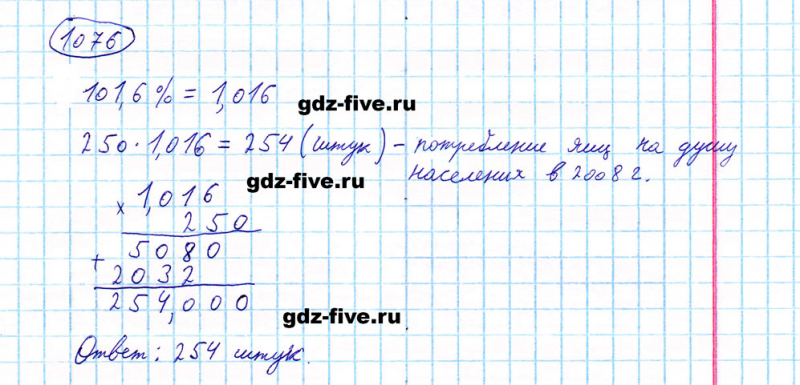 1076
101,6% = 1,016
gdz-five.ru
250 · 1,016 = 254 (штук) – потребление яиц на душу
населения в 2008 г.
gdz-five.ru
× 1,016
250
+ 5080
2032
254,000
gdz-five.ru
Ответ: 254 штук.